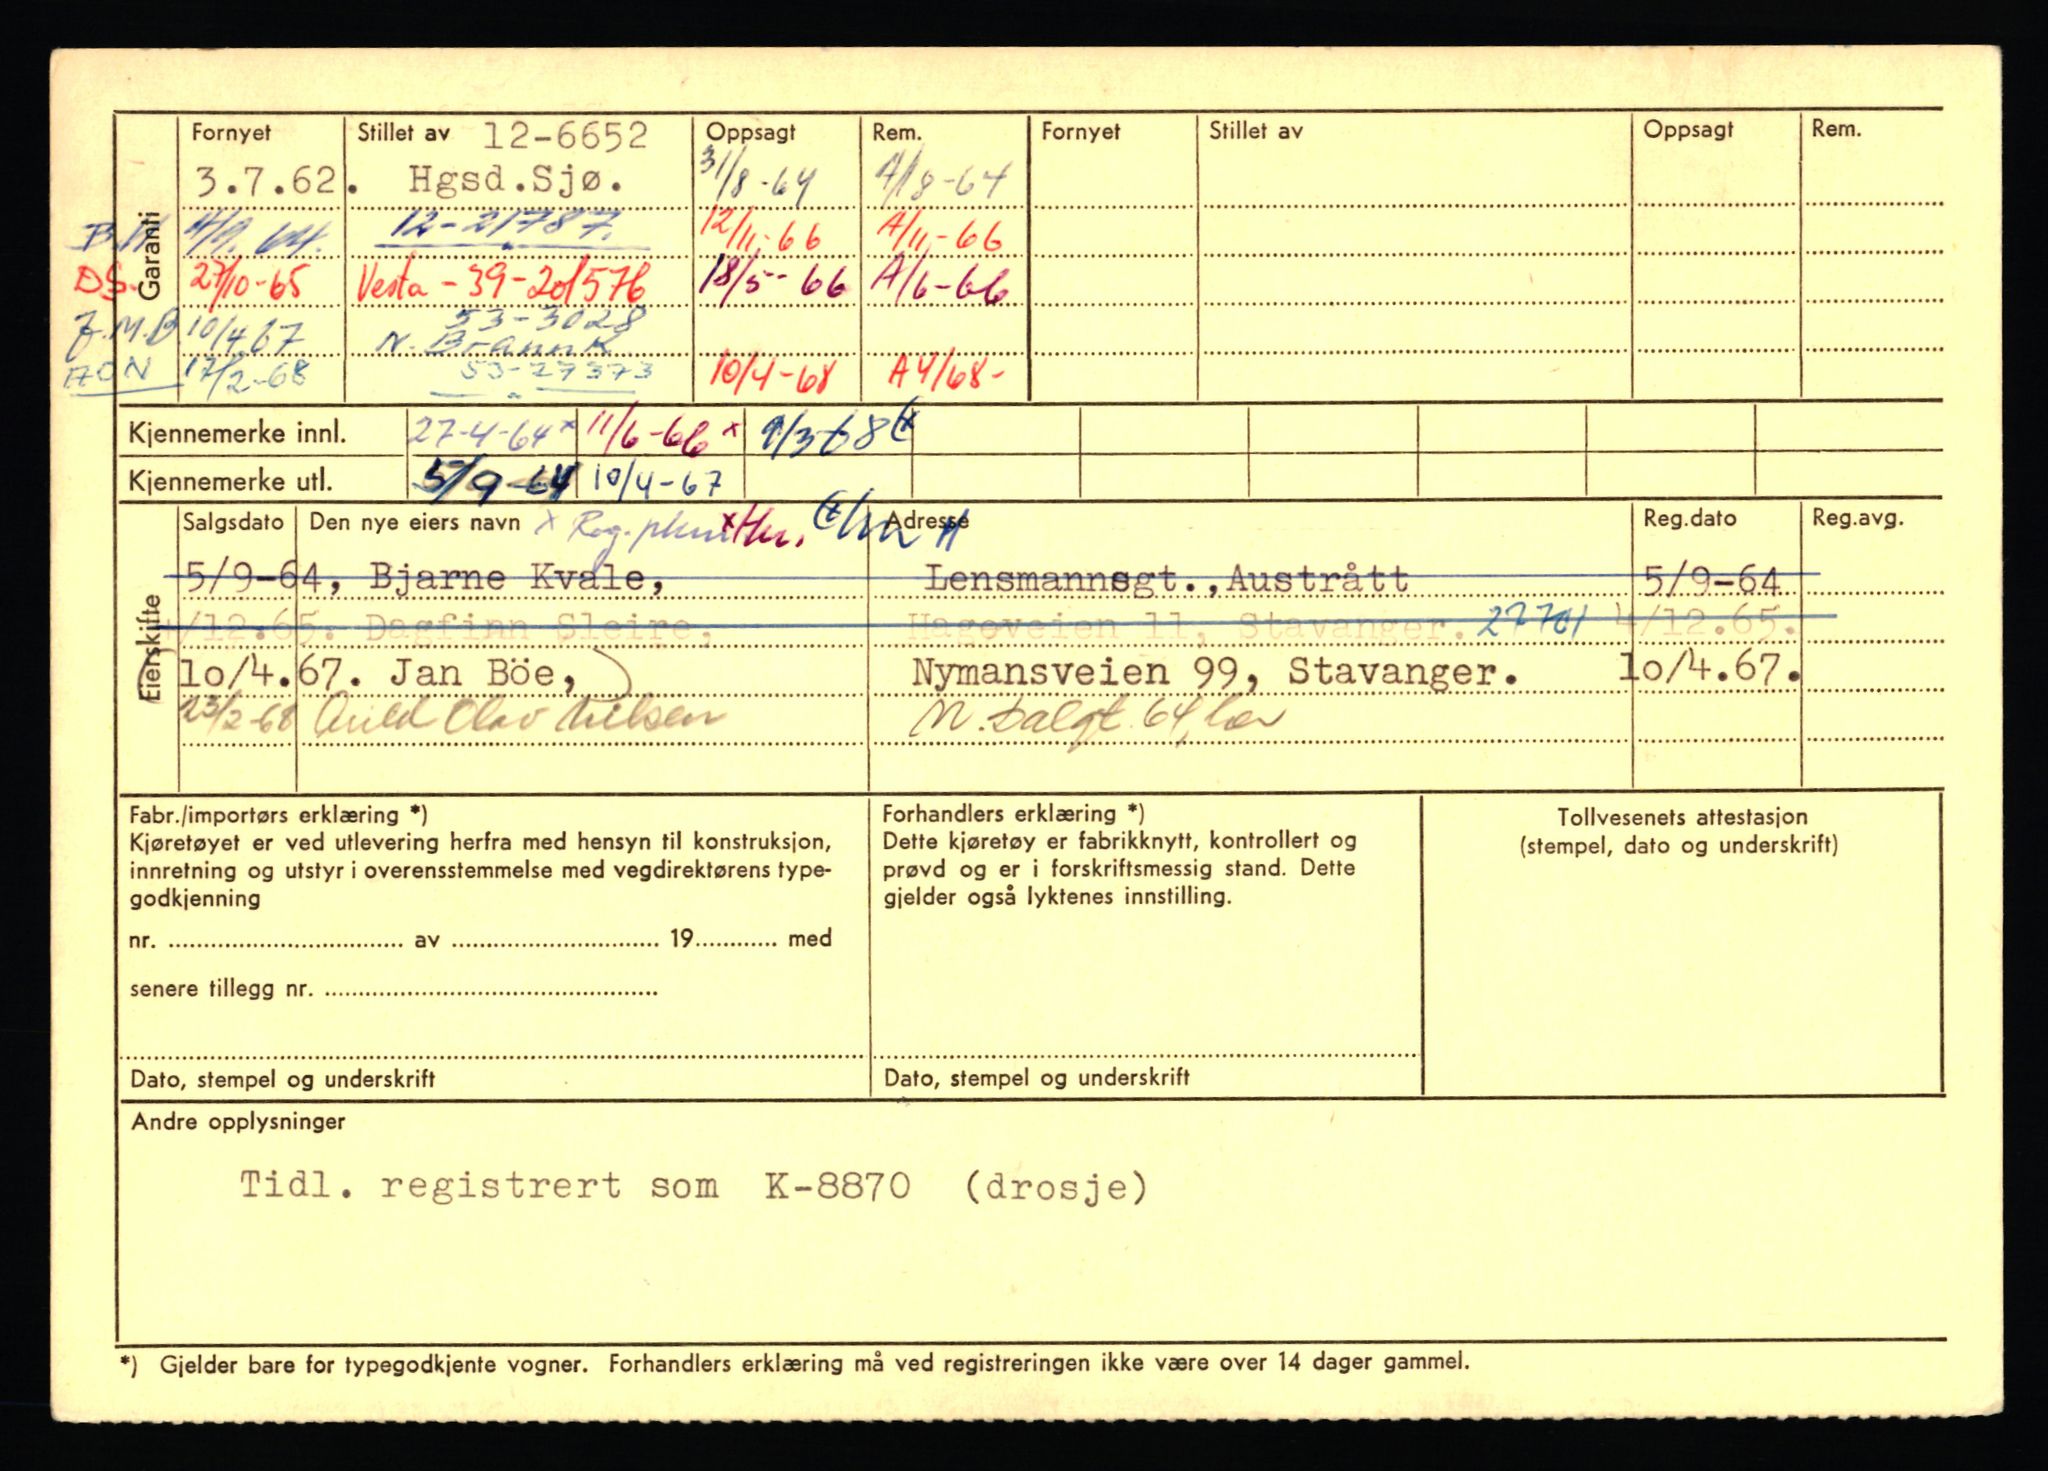 Garanti
Fornyet Stillet av 12-6652 Oppsagt Rem. Fornyet Stillet av Oppsagt Rem.
3.7.62. Hgsd.Sjø. 31/8-64 A/8-64
4/9. 64. 12-21787. 12/11-66 A/11-66
DS. 27/10-65 Vesta-39-201576 18/5-66 A/6-66
53-3028
J.M.B 10/4 67 N. Brannk
17/2-68 53-27373 10/4-68 A4/68-
Kjennemerke innl. 27-4-64x 11/6-66x 9/3-68
Kjennemerke utl. 5/9-64 10/4-67
Eierskifte
Salgsdato Den nye eiers navn x Reg. Adresse Reg.dato Reg.avg.
5/9-64, Bjarne Kvale, Lensmannsgt.,Austrått 5/9-64
4/12.65. Dagfinn Sleire, Hageveien 11, Stavanger. 27701 4/12.65.
10/4.67. Jan Böe, Nymansveien 99, Stavanger. 10/4.67.
23/2-68 Olav Nilsen N. Dalgt. 64, her
Fabr./importørs erklæring *)
Kjøretøyet er ved utlevering herfra med hensyn til konstruksjon,
innretning og utstyr i overensstemmelse med vegdirektørens type-
godkjenning
nr. ........ av ........ 19........ med
senere tillegg nr. ........
Dato, stempel og underskrift
Forhandlers erklæring *)
Dette kjøretøy er fabrikknytt, kontrollert og
prøvd og er i forskriftsmessig stand. Dette
gjelder også lyktenes innstilling.
Dato, stempel og underskrift
Tollvesenets attestasjon
(stempel, dato og underskrift)
Andre opplysninger
Tidl. registrert som K-8870 (drosje)
*) Gjelder bare for typegodkjente vogner. Forhandlers erklæring må ved registreringen ikke være over 14 dager gammel.